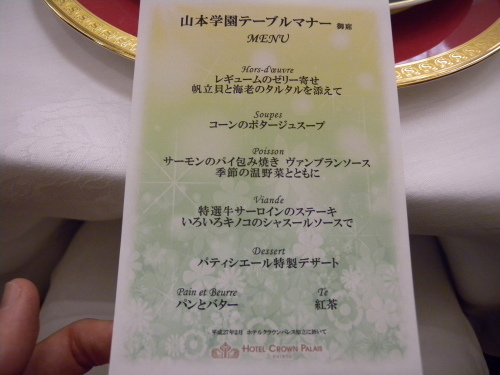 山本学園テーブルマナー 御席
MENU
Hors-d'œuvre
レギュームのゼリー寄せ
帆立貝と海老のタルタルを添えて
Soupes
コーンのポタージュスープ
Poisson
サーモンのパイ包み焼き ヴァンブランソース
季節の温野菜とともに
Viande
特選牛サーロインのステーキ
いろいろキノコのシャスールソースで
Dessert
パティシエール特製デザート
Pain et Beurre
パンとバター
Te
紅茶
平成27年2月 ホテルクラウンパレス知立に於いて
HOTEL CROWN PALAIS